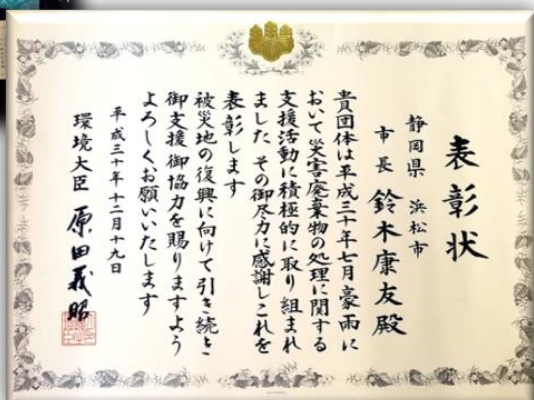 表彰状
静岡県 浜松市
市長 鈴木康友殿
貴団体は平成三十年七月豪雨に
おいて災害廃棄物の処理に関する
支援活動に積極的に取り組まれ
ました その御尽力に感謝しこれを
表彰します
被災地の復興に向けて引き続き
御支援御協力を賜りますよう
よろしくお願いいたします
平成三十年十二月十九日
環境大臣 原田義昭